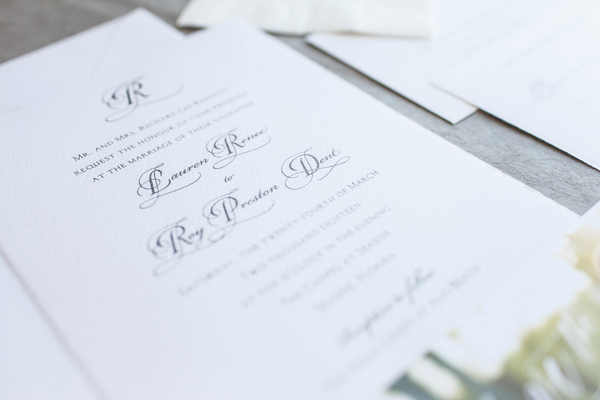 R
Mr. and Mrs. Richard Lee
request the honour of your presence
at the marriage of their daughter
Lauren Renee
to
Roy Preston Dent
Saturday, the twenty-fourth of March
Two thousand eighteen
at five o'clock in the evening
The Chapel at Seaside
Seaside, Florida
Reception to follow